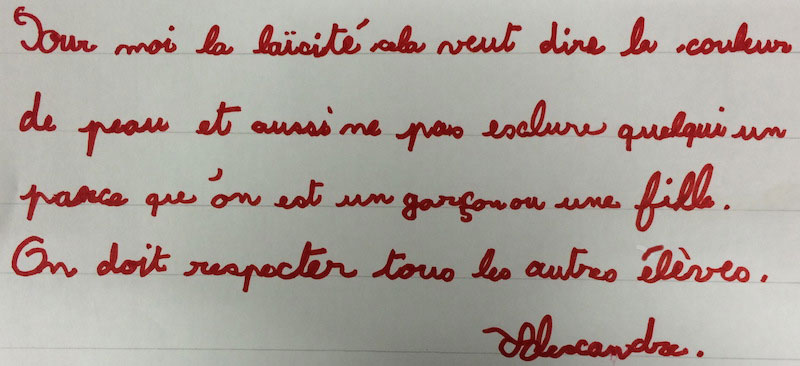 Pour moi la laïcité cela veut dire la couleur
de peau et aussi ne pas esclure quelqui un
parce qu'on est un garçon ou une fille.
On doit respecter tous les autres élèves.
Alexandre.